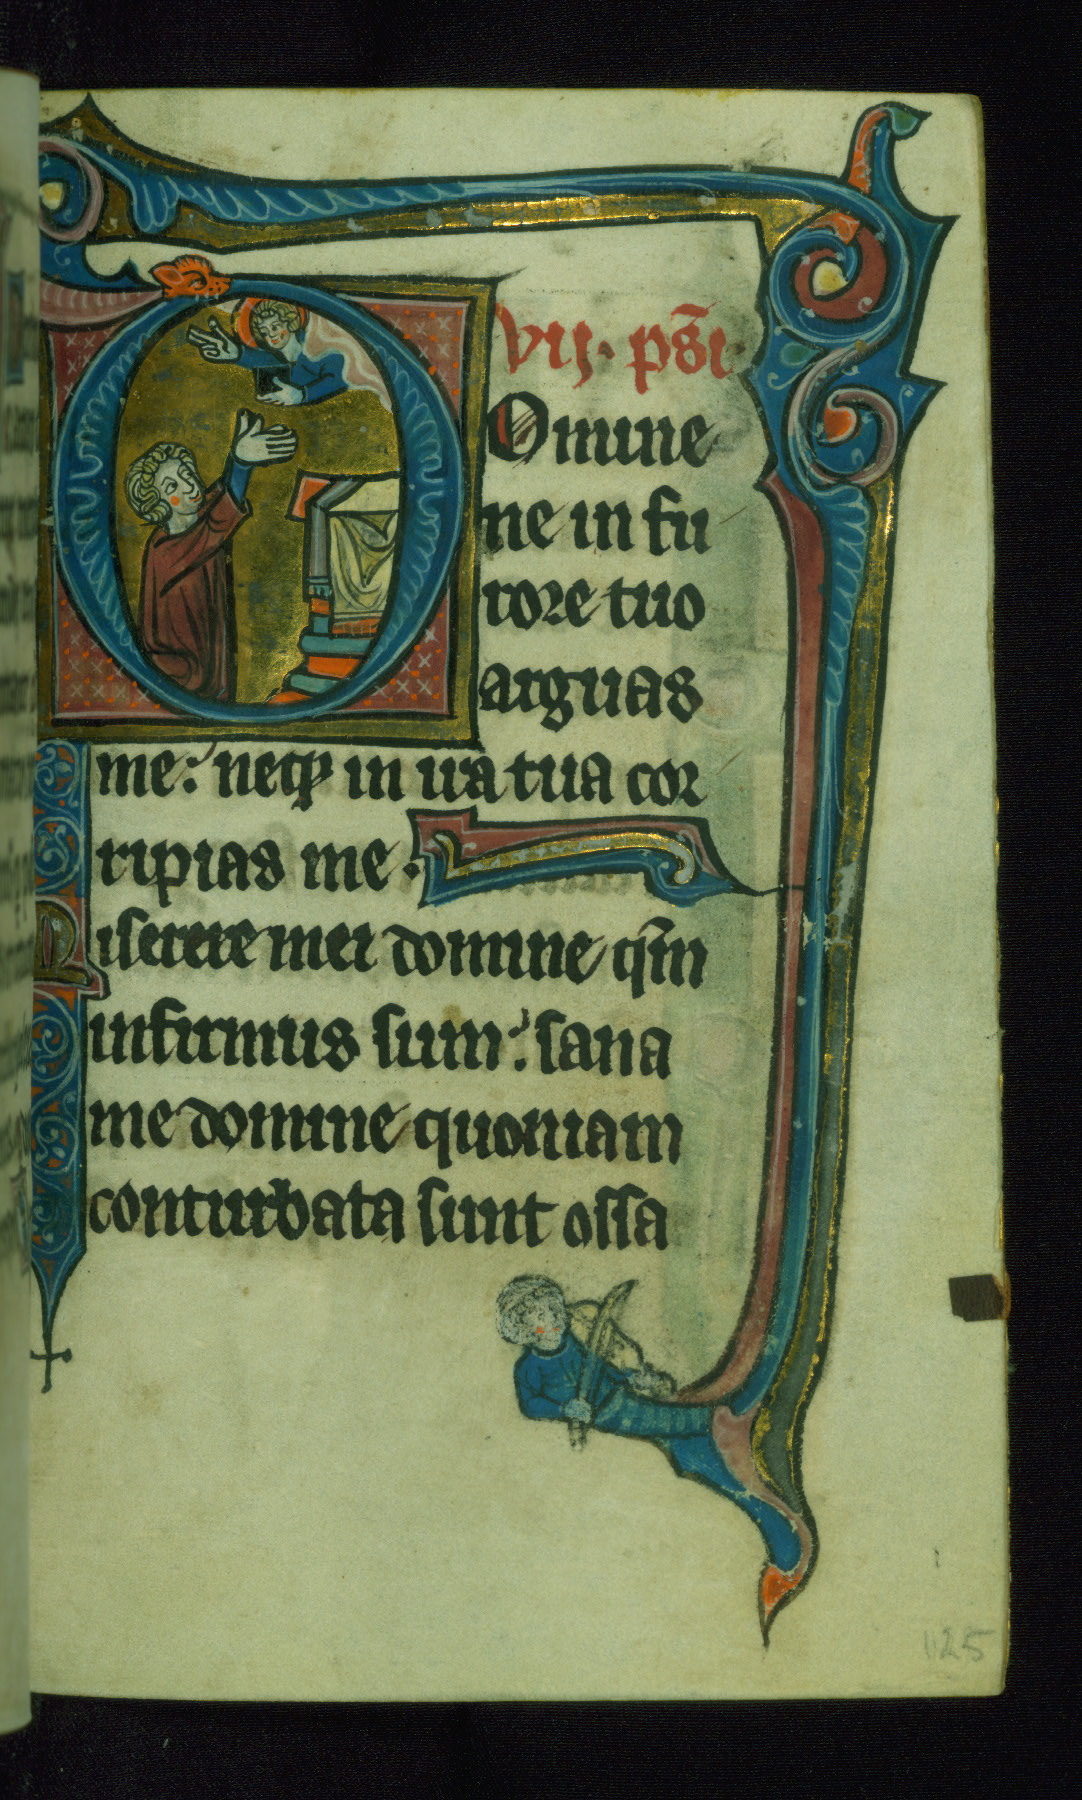 vij. ps̄i
Domine
ne in fu
rore tuo
arguas
me: neqꝫ in ira tua cor
ripias me.
Miserere mei domine qm̄
infirmus sum: sana
me domine quoniam
conturbata sunt ossa
125